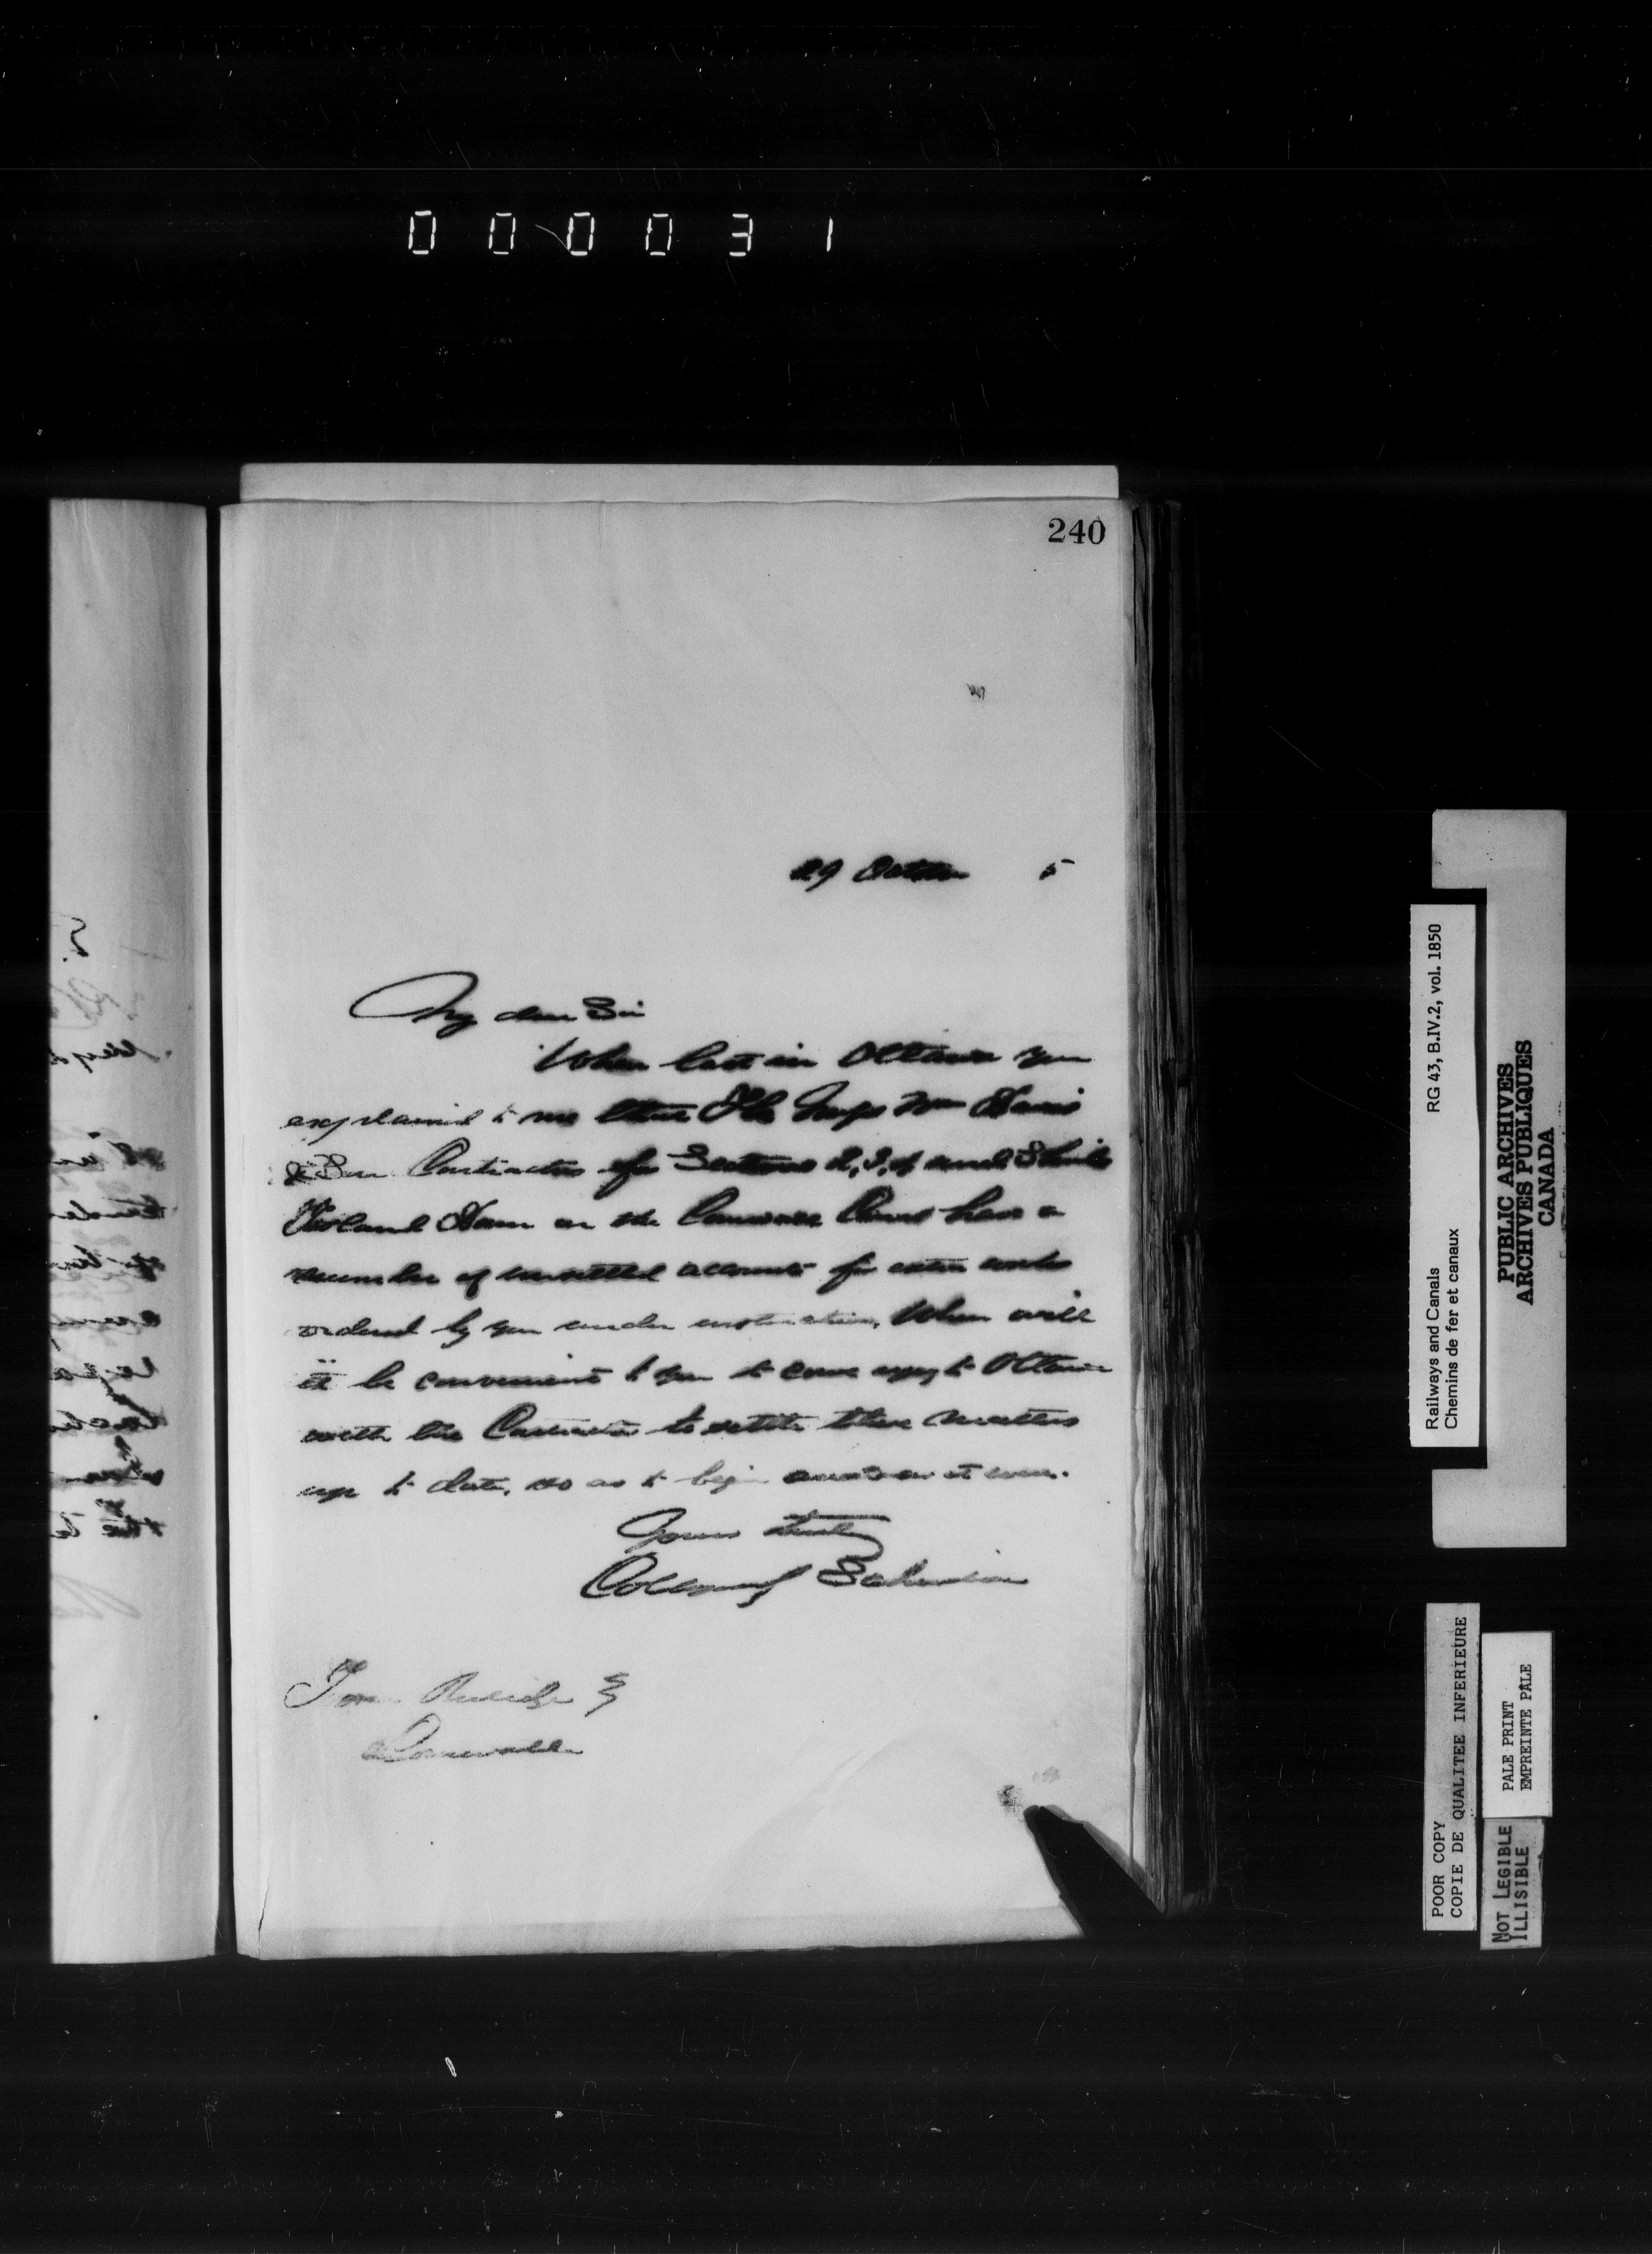 000031
240
29 October 5
My dear Sir
When last in Ottawa you
explained to me that the Messrs Wm Davis
& Son Contractors for Sections 2, 3, 4 and Sheiks
Island Dam on the Cornwall Canal have a
number of unsettled accounts for extra works
ordered by you under instruction. When will
it be convenient to you to come up to Ottawa
with the Contractor to settle these matters
up to date, so as to begin
Yours truly
Collingwood Schreiber
Cornwall
Railways and Canals RG 43, B.IV.2, vol. 1850
Chemins de fer et canaux
PUBLIC ARCHIVES
ARCHIVES PUBLIQUES
CANADA
POOR COPY
COPIE DE QUALITEE INFERIEURE
PALE PRINT
EMPREINTE PÂLE
NOT LEGIBLE
ILLISIBLE